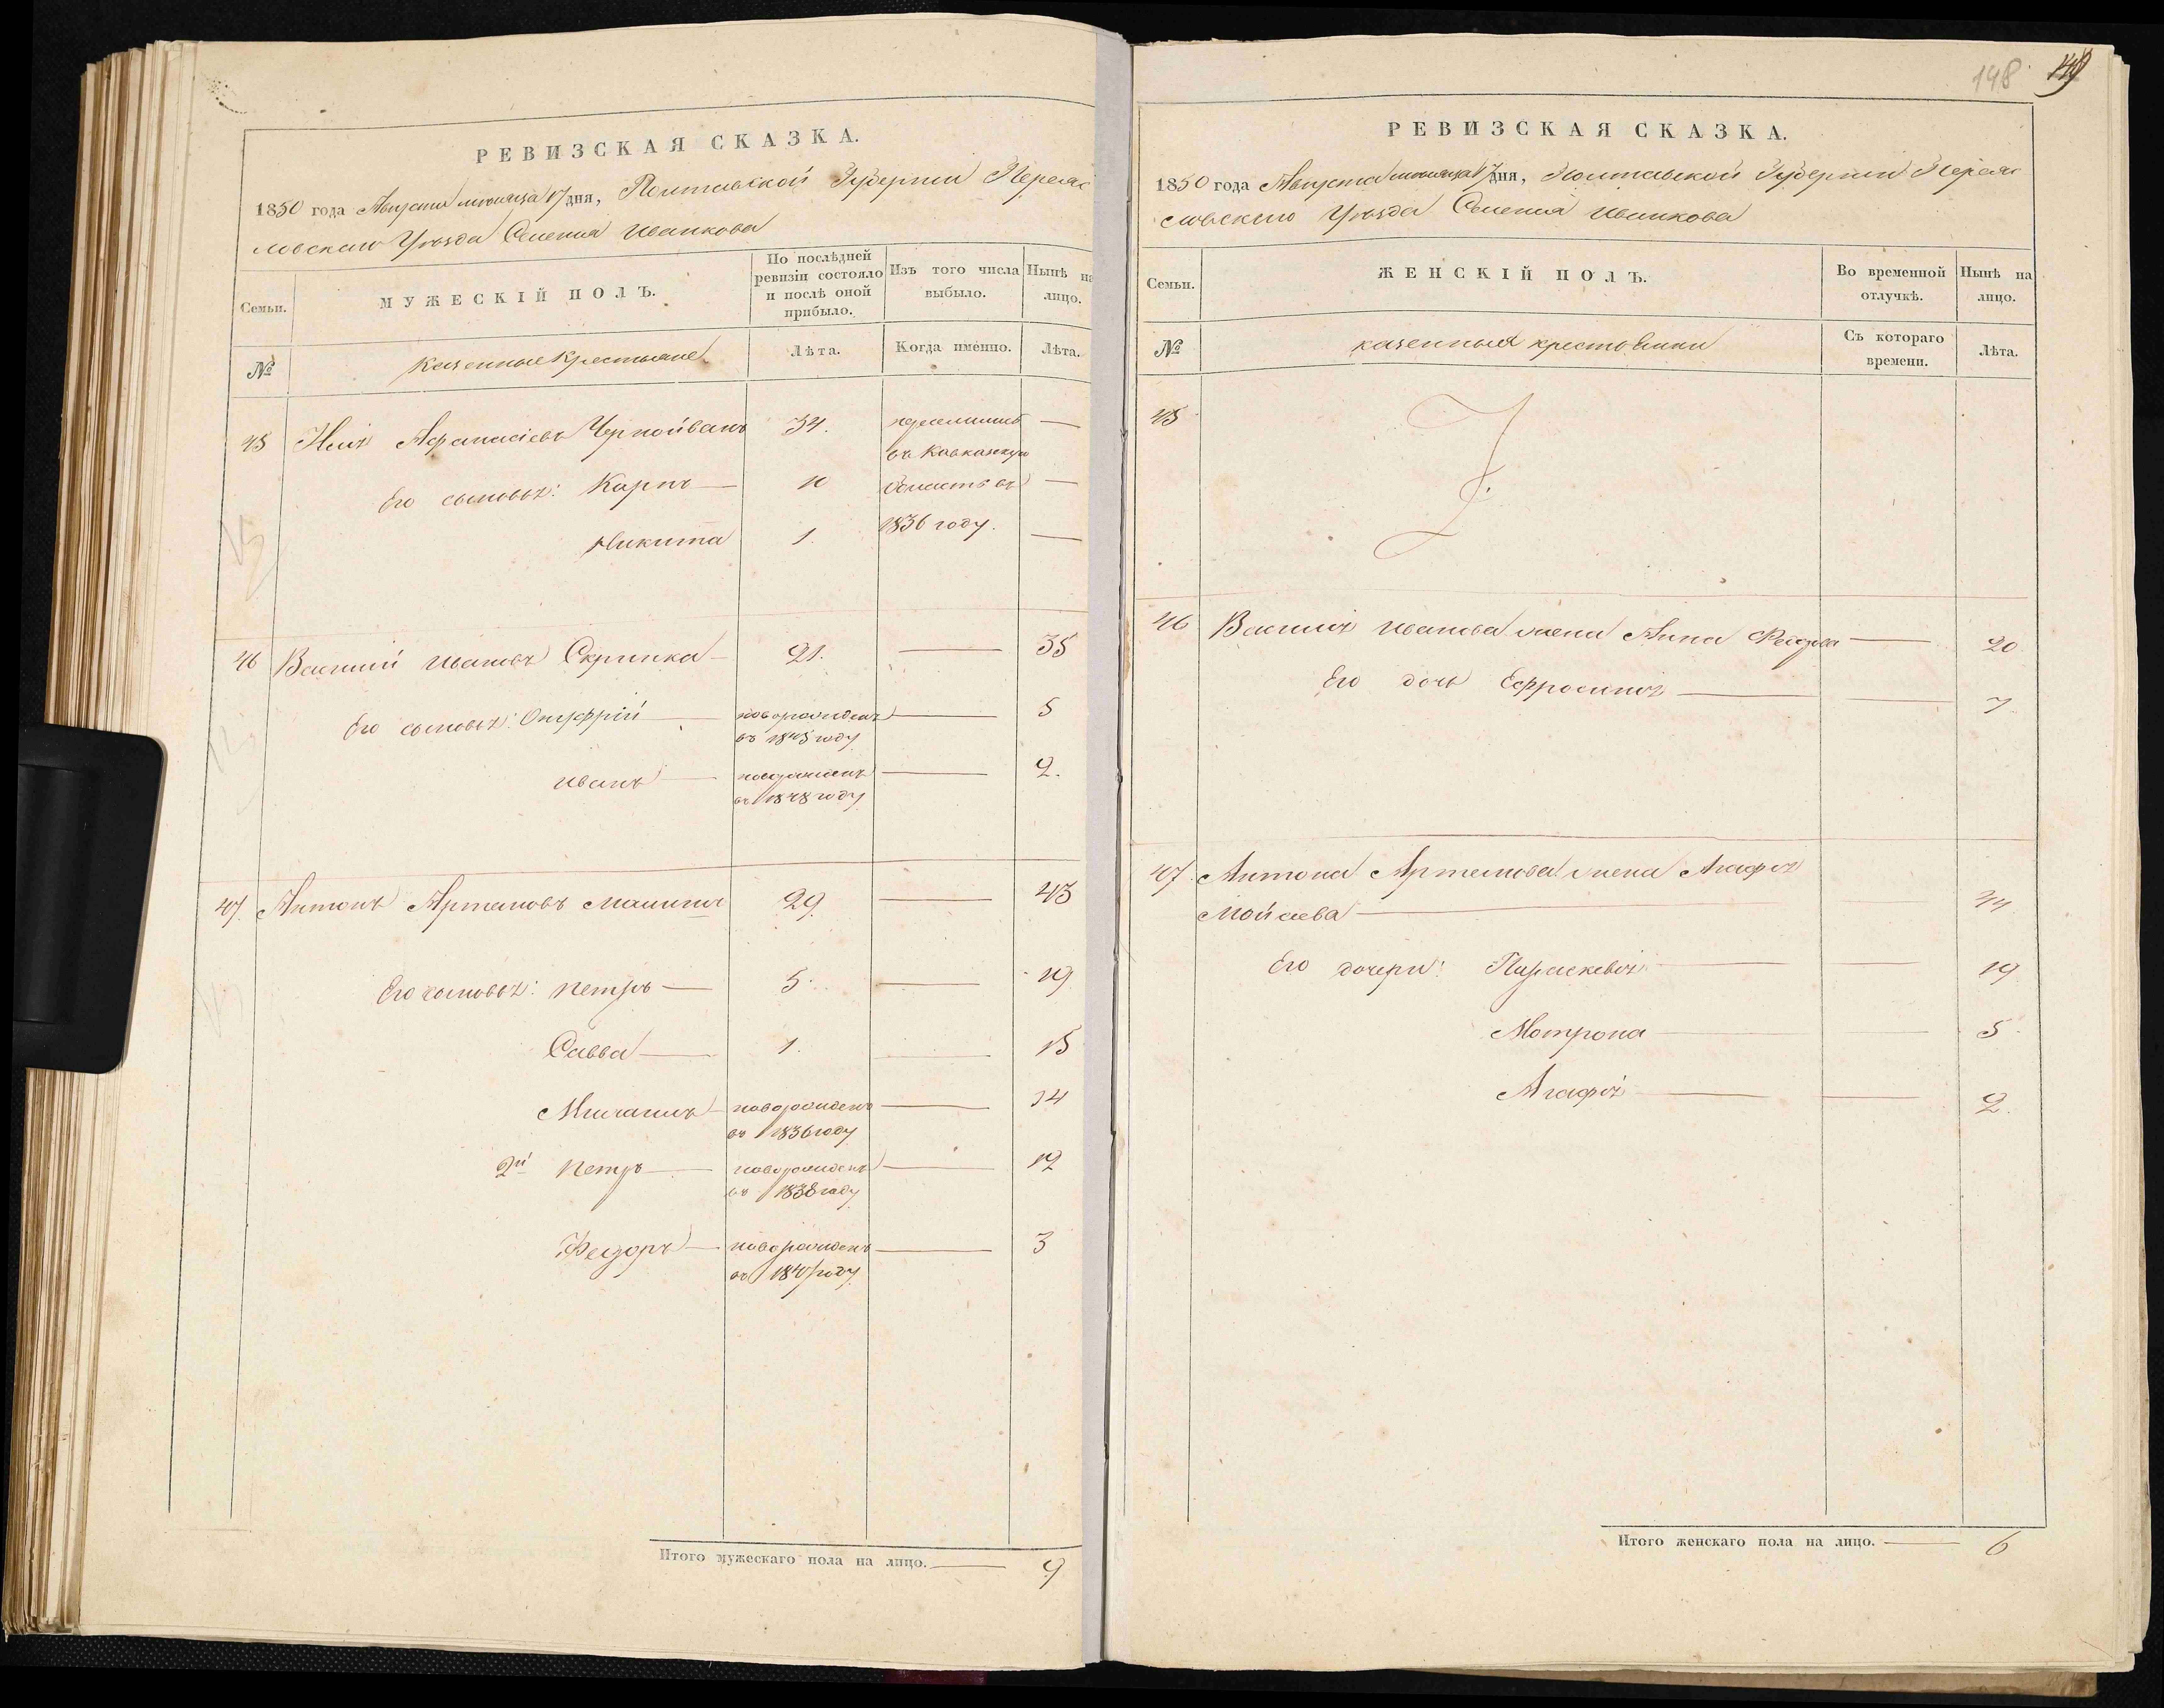 РЕВИЗСКАЯ СКАЗКА.
1850 года Августа месяца 17 дня, Полтавской Губернии Переяс
ловскаго Уѣзда Селения Иванкова
Семьи. МУЖЕСКІЙ ПОЛЪ. По послѣдней ревизіи состояло и послѣ оной прибыло. Изъ того числа выбыло. Нынѣ на лицо.
№ Казенные Крестьяне Лѣта. Когда именно. Лѣта.
45 Афанасіевъ Чернойванъ 34. переселились —
въ Кавказкую
Его сыновья: Карпъ — 10 Область въ —
Никита 1. 1836 году. —
46 Василий Ивановъ Скрипка — 21. — 35
Его сыновья: Онуфрій — новорожденъ — 5
въ 1845 году
Иванъ — новорожденъ — 2.
въ 1848 году
47. Антонъ Артемовъ 29. — 43
Его сыновья: Петръ — 5. — 19
Савва — 1. — 15
Михаилъ — новорожденъ — 14
въ 1836 году
2й Петръ — новорожденъ — 12
въ 1838 году
Федоръ — новорожденъ — 3
въ 1847 году
Итого мужескаго пола на лицо. — 9
148 149
РЕВИЗСКАЯ СКАЗКА.
1850 года Августа месяца 17 дня, Полтавской Губернии Переяс
ловскаго Уѣзда Селения Иванкова
Семьи. ЖЕНСКІЙ ПОЛЪ. Во временной отлучкѣ. Нынѣ на лицо.
№ казенныя крестьянки Съ котораго времени. Лѣта.
45
46 Василия Иванова жена Анна Федорова — 20
Его дочь Ефросиния — — 7
47. Антона Артемова жена Агафия
Мойсеева — — 44
Его дочери: Параскевия — — 19
Мотрона — — 5
Агафия — — 2.
Итого женскаго пола на лицо. — 6